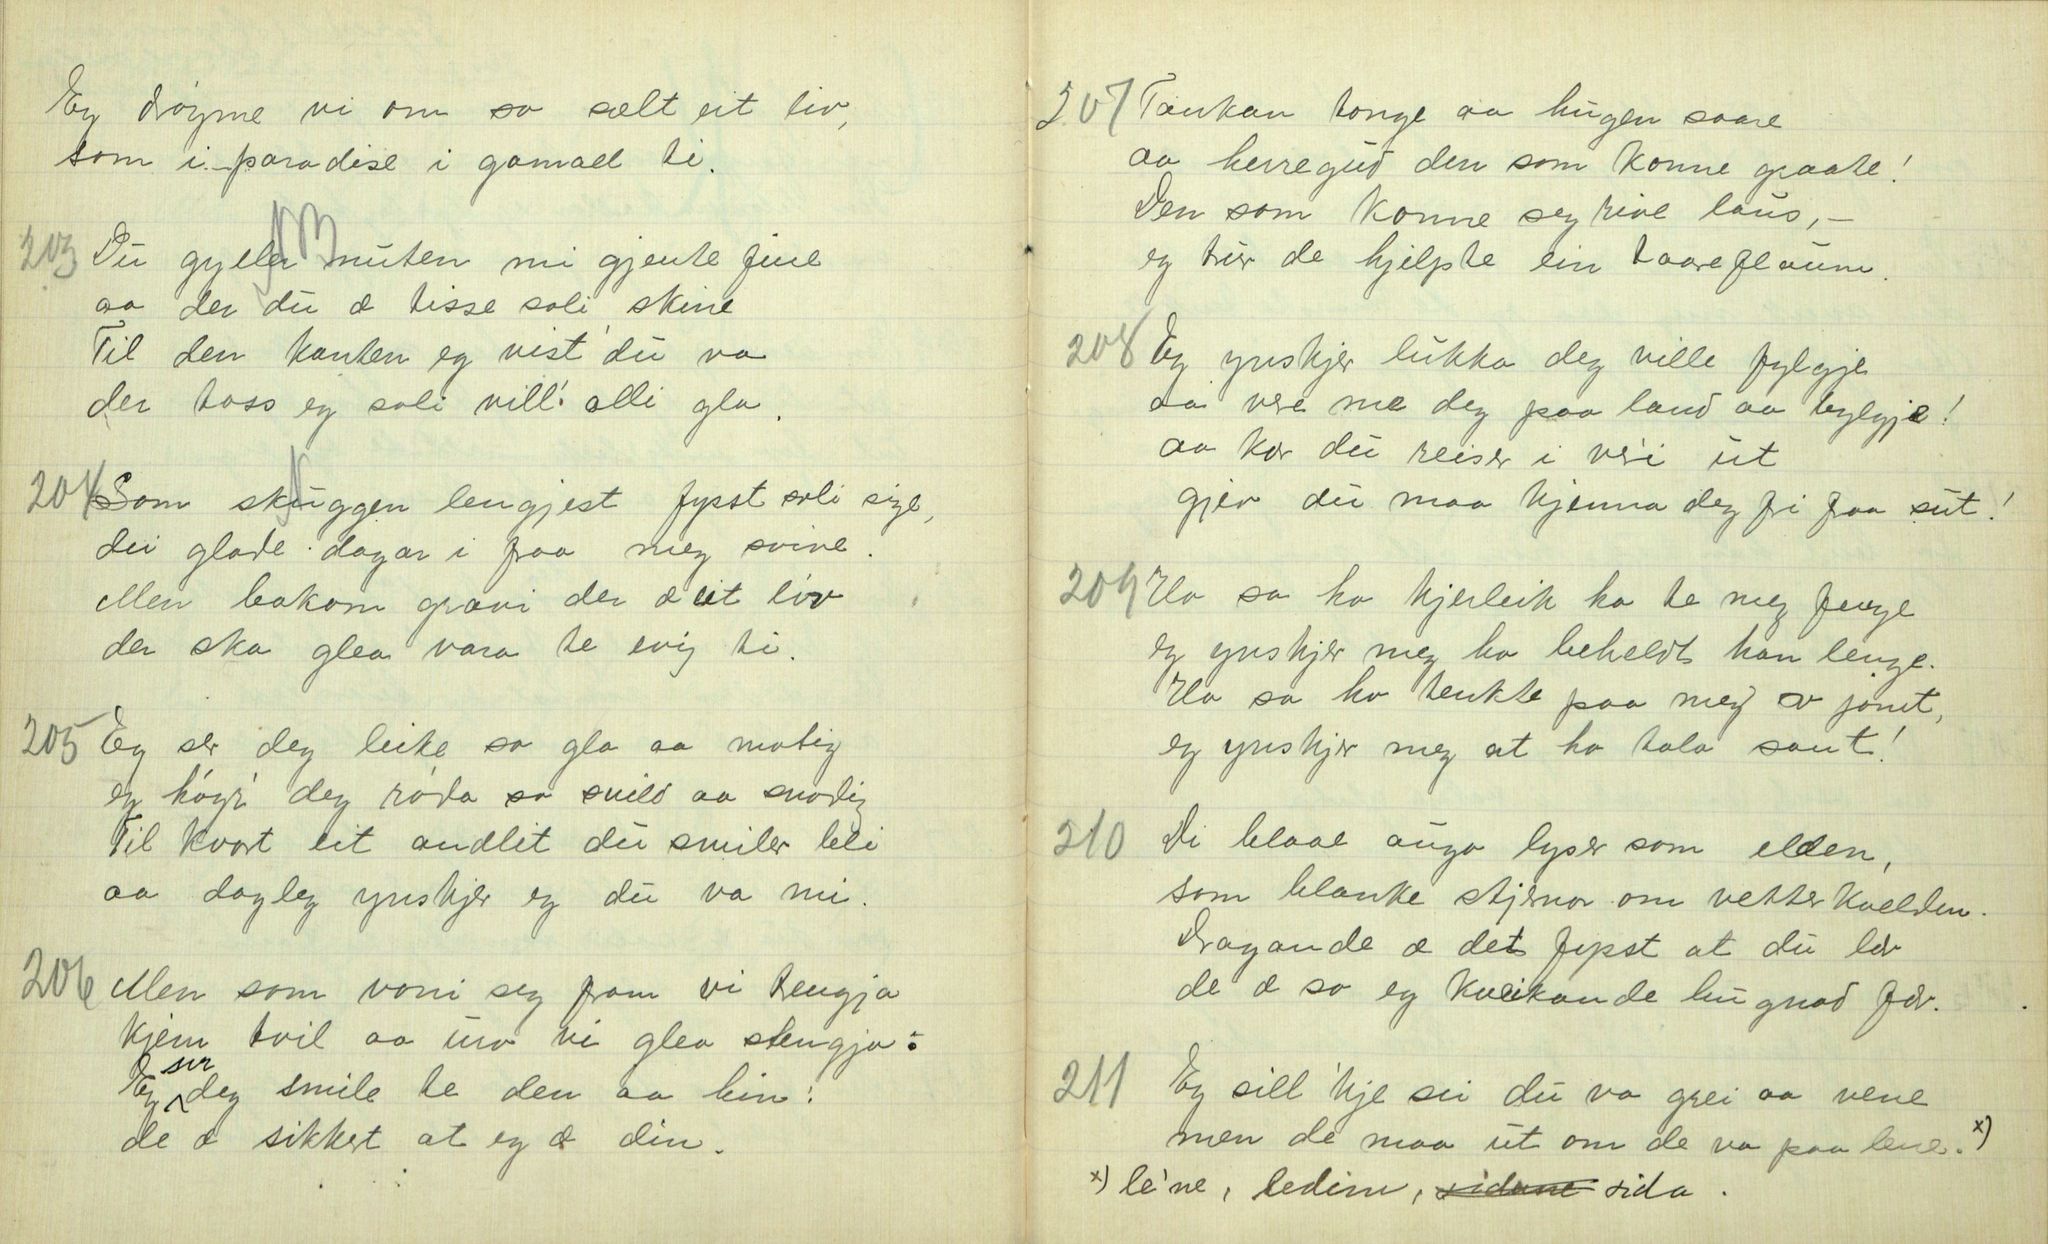 Eg drøyme vi om so sælt eit liv,
som i paradise i gamall ti.
203 Du gyller nuten mi gjente fine
aa der du æ tisse soli skine
Til den kanten eg vist' du va
der toss eg soli vill' alli gla.
204 Som skuggen lengjest fysst soli sige,
dei glade dagar i fraa meg svive.
Men bakom gravi der æ eit liv
der ska glea vara te evig ti.
205 Eg ser deg leike so gla aa modig
eg høyr' deg røda so snild aa snodig
Til kvart eit andlit du smiler bli
aa dagleg ynskjer eg du va mi.
206 Men som voni seg fram vi trengja
kjem tvil aa uro vi glea stengja:
Eg ser deg smile te den aa hin:
de æ sikkert at eg æ din.
207 Tankan tonge aa hugen saare
aa herregud den som konne graate!
Den som konne seg rive laus,–
eg trur de hjelpte ein taareflaum.
208 Eg ynskjer lukka deg ville fylgje
aa vere me deg paa land aa bylgje!
aa kor du reiser i væri ut
gjev du maa kjenna deg fri fraa sut!
209 Ho sa ho kjerleik ha te meg fenge
eg ynskjer meg ho beheldt han lenge.
Ho sa ho tenkte paa meg so jamt,
eg ynskjer meg at ho tala sant!
210 Di blaae augo lyser som elden,
som blanke stjernor om vetterkvelden.
Dragande æ det fysst at du lær
de æ so eg kveikande hugnad fær.
211 Eg sill 'kje sei du va grei aa vene
men de maa ut om de va paa lene. x)
x) le'ne, ledine, sidune sida.